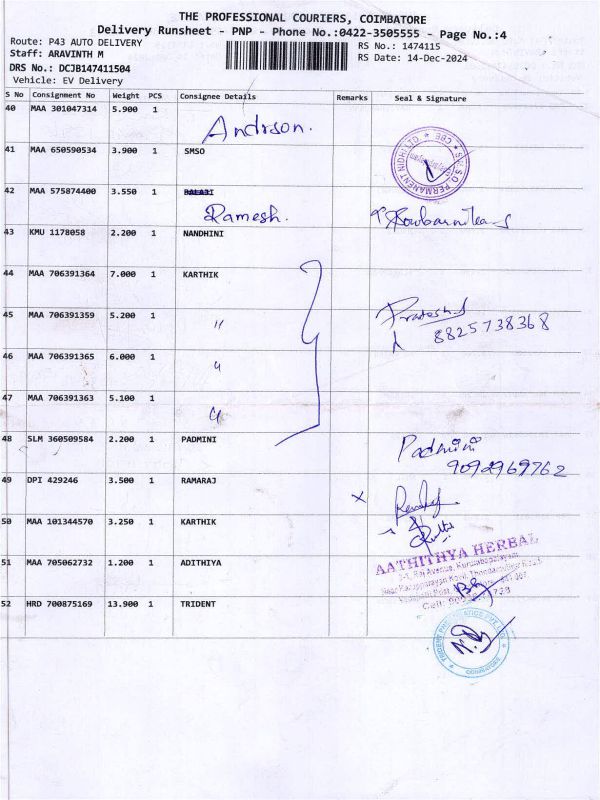 THE PROFESSIONAL COURIERS, COIMBATORE
Delivery Runsheet - PNP - Phone No.:0422-3505555 - Page No.:4
Route: P43 AUTO DELIVERY RS No.: 1474115
Staff: ARAVINTH M RS Date: 14-Dec-2024
DRS No.: DCJB147411504
Vehicle: EV Delivery
S No Consignment No Weight PCS Consignee Details Remarks Seal & Signature
40 MAA 301047314 5.900 1 Andrson.
41 MAA 650590534 3.900 1 SMSO
S.M.S.O PERMANENT NIDHI LTD ★ CBE ★
42 MAA 575874400 3.550 1 BALAJI
Ramesh.
43 KMU 1178058 2.200 1 NANDHINI
44 MAA 706391364 7.000 1 KARTHIK
45 MAA 706391359 5.200 1 "
Pratesh.S
8825738368
46 MAA 706391365 6.000 1 "
47 MAA 706391363 5.100 1 "
48 SLM 360509584 2.200 1 PADMINI Padmini
9092969762
49 DPI 429246 3.500 1 RAMARAJ
50 MAA 101344570 3.250 1 KARTHIK
51 MAA 705062732 1.200 1 ADITHIYA
AATHITHYA HERBAL
52 HRD 700875169 13.900 1 TRIDENT
TRIDENT PVT LTD
COIMBATORE